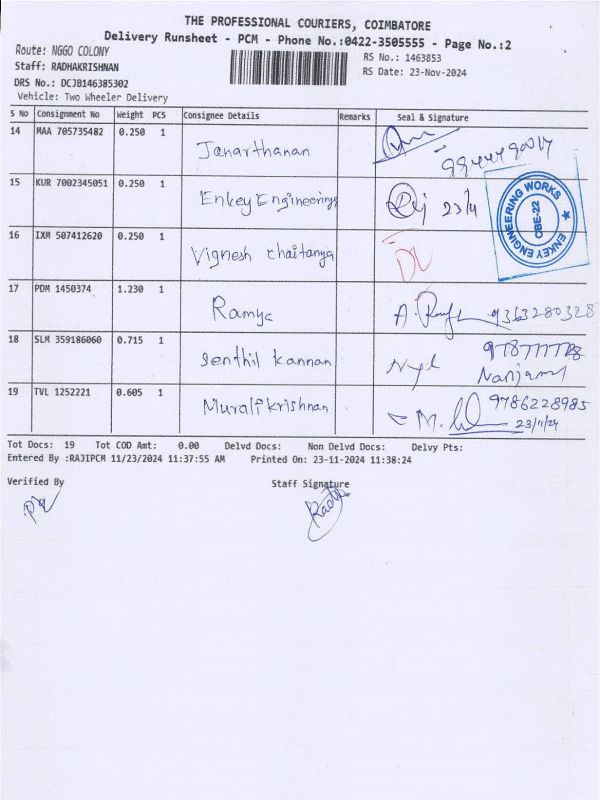 THE PROFESSIONAL COURIERS, COIMBATORE
Delivery Runsheet - PCM - Phone No.:0422-3505555 - Page No.:2
Route: NGGO COLONY
RS No.: 1463853
Staff: RADHAKRISHNAN
RS Date: 23-Nov-2024
DRS No.: DCJB146385302
Vehicle: Two Wheeler Delivery
S No Consignment No Weight PCS Consignee Details Remarks Seal & Signature
14 MAA 705735482 0.250 1 Janarthanan
15 KUR 7002345051 0.250 1 Enkey Engineerings 23/4
ENKEY ENGINEERING WORKS
CBE-22
16 IXM 507412620 0.250 1 Vignesh chaitanya DL
17 PDM 1450374 1.230 1 Ramya 9363280328
18 SLM 359186060 0.715 1 Senthil Kannan
19 TVL 1252221 0.605 1 Muralikrishnan 9786228985
23/11/24
Tot Docs: 19 Tot COD Amt: 0.00 Delvd Docs: Non Delvd Docs: Delvy Pts:
Entered By :RAJIPCM 11/23/2024 11:37:55 AM Printed On: 23-11-2024 11:38:24
Verified By Staff Signature